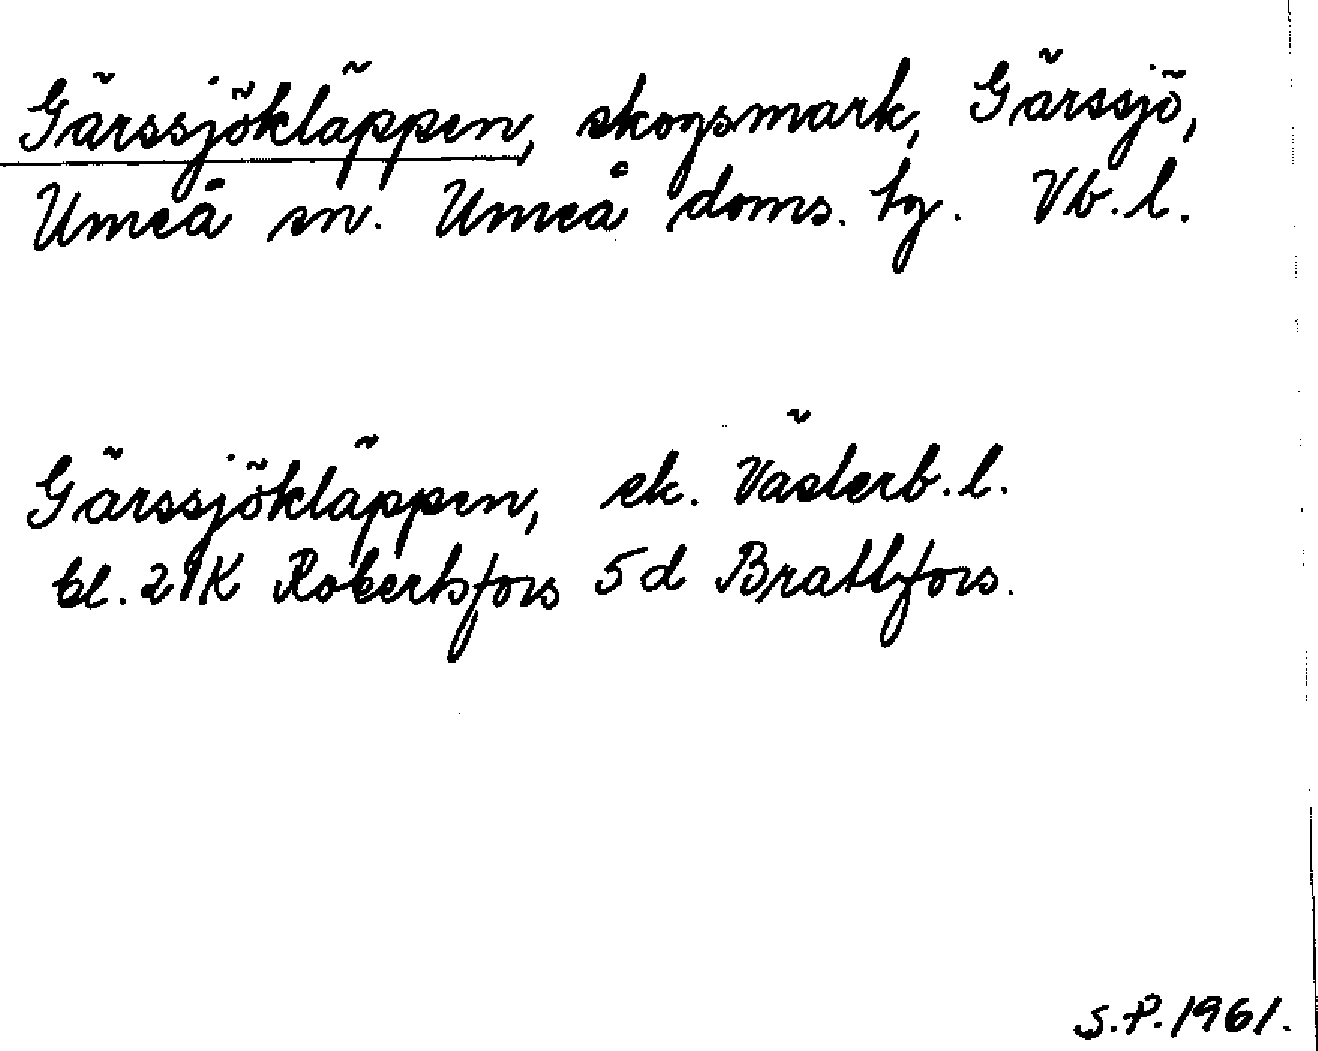 Gärssjökläppen, skogsmark, Gärssjö,
Umeå sn. Umeå doms. tg. Vb.l.
Gärssjökläppen, ek. Västerb.l.
bl. 21K Robertsfors 5d Brattfors.
S.P. 1961.